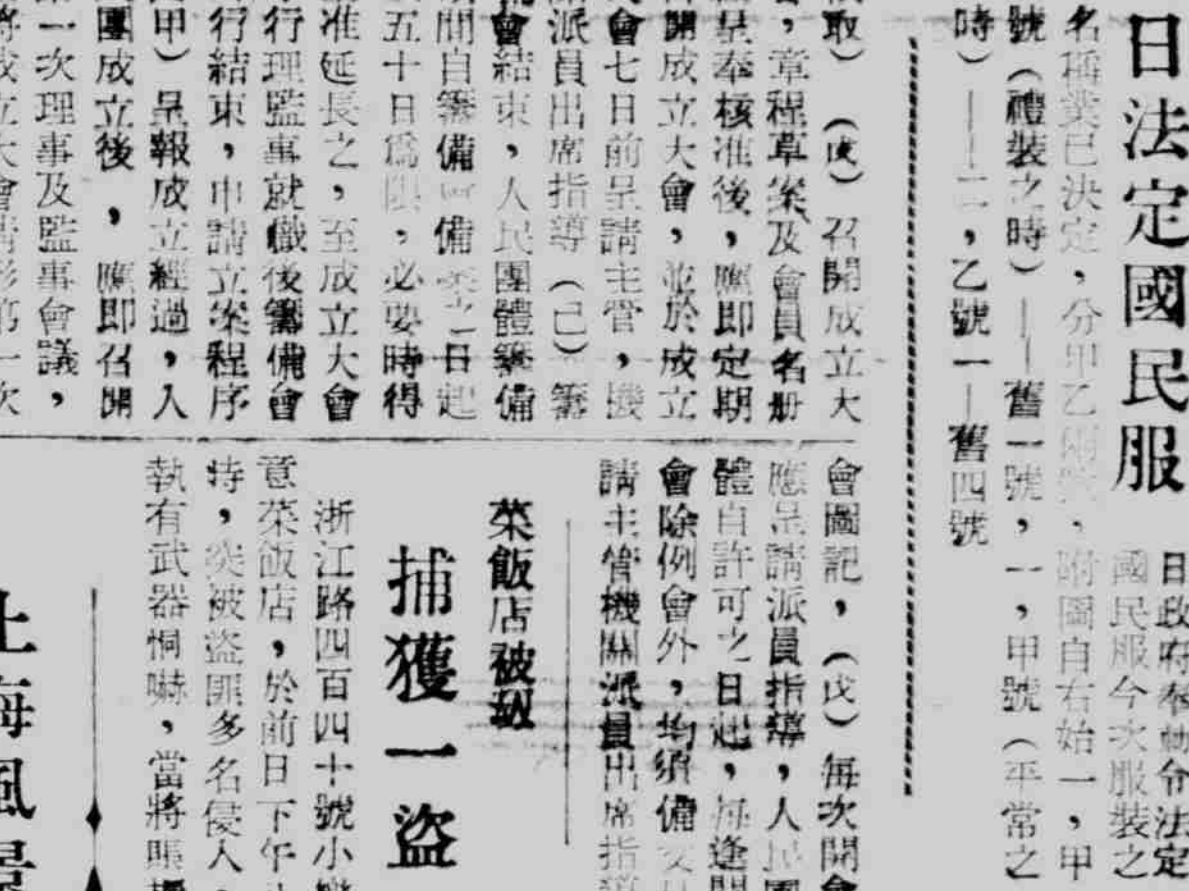 日法定國民服
日政府奉勅令法定
國民服今次服裝之
名稱業已決定，分甲乙兩號，附圖自右始一，甲
號（禮裝之時）——舊一號，一，甲號（平常之
時）——二，乙號一—舊四號
取）（戊）召開成立大
，章程草案及會員名册
呈奉核准後，應即定期
開成立大會，並於成立
會七日前呈請主管，機
派員出席指導（己）籌
會結束，人民團體籌備
期間自籌備日起
五十日爲限，必要時得
准延長之，至成立大會
行理監事就職後籌備會
行結束，申請立案程序
甲）呈報成立經過，人
團成立後，應即召開
第一次理事及監事會議，
將成立大會情形第一次
會圖記，（戊）每次開會
應呈請派員指導，人民團
體自許可之日起，每逢開
會除例會外，均須備
請主管機關派員出席指導
菜飯店被刧
捕獲一盜
浙江路四百四十號小樂
意菜飯店，於前日下午
時，突被盜匪多名侵入，
執有武器恫嚇，當將賬
上海風景